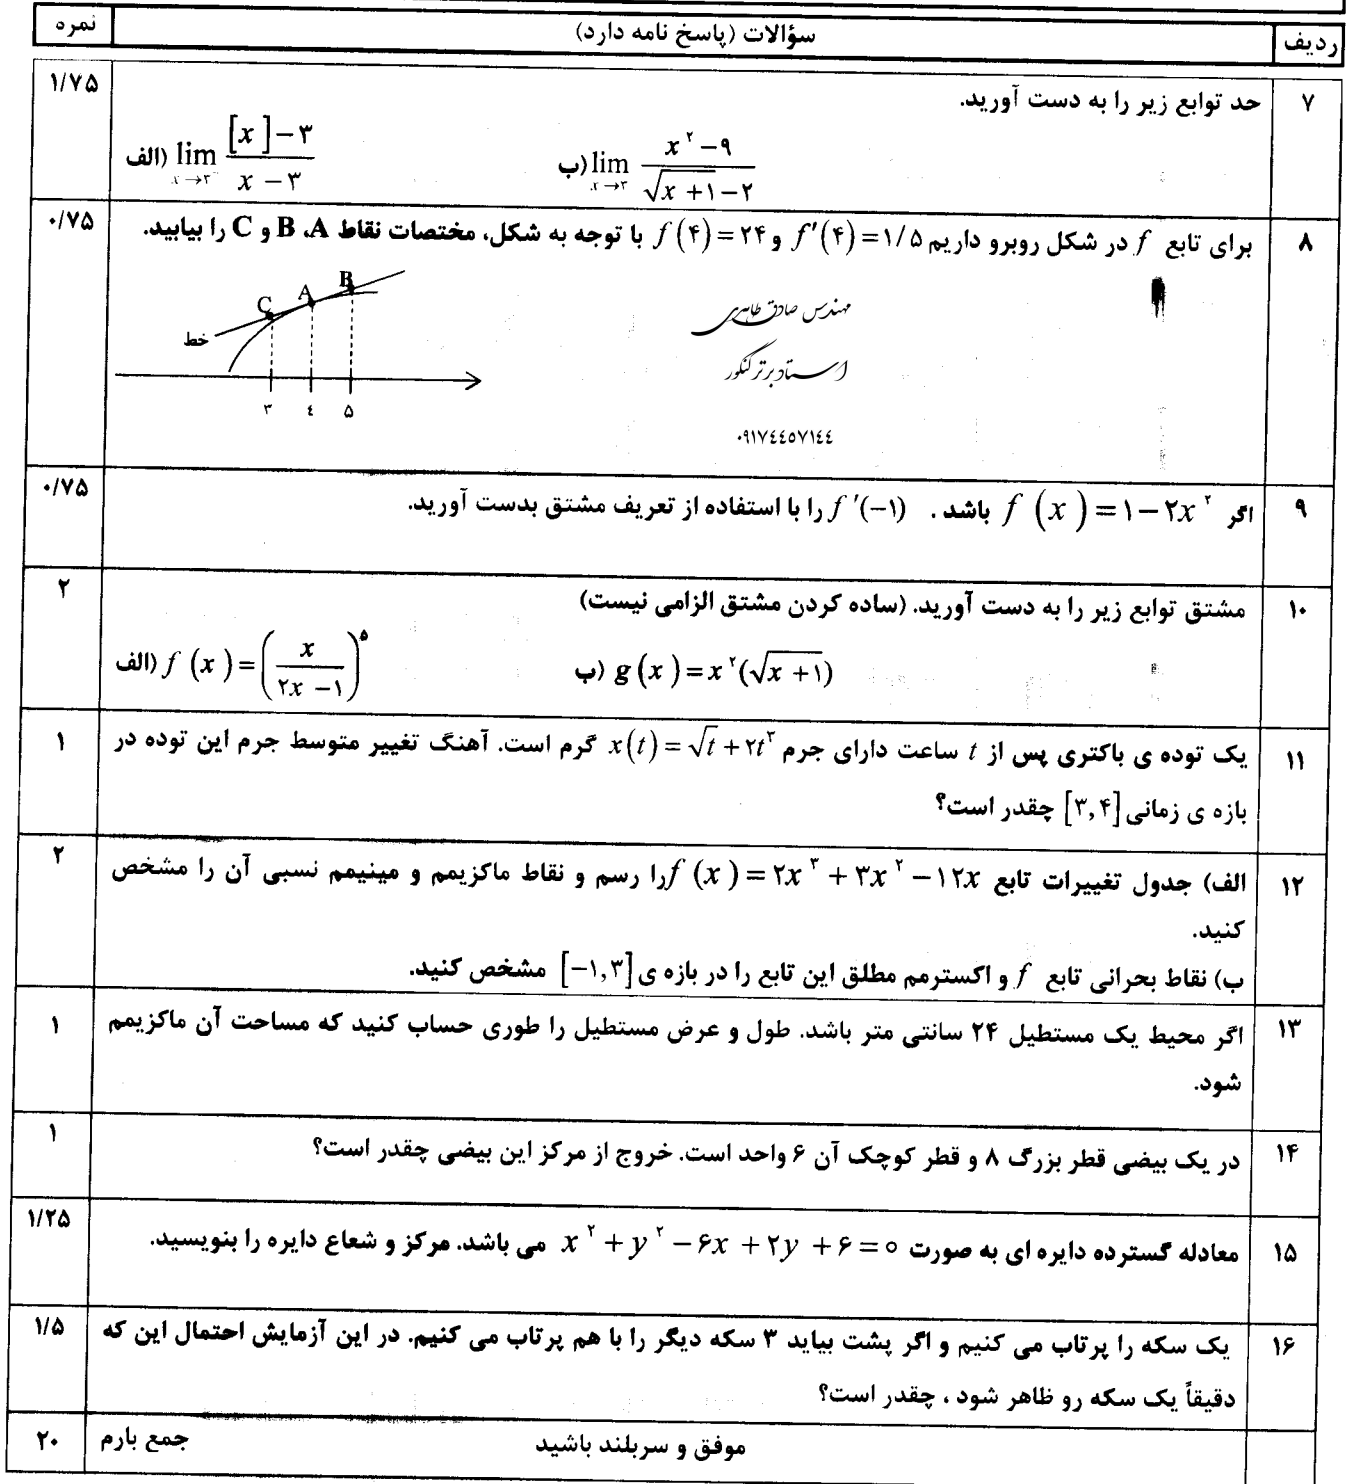 ردیف سؤالات (پاسخ نامه دارد) نمره
۷ حد توابع زیر را به دست آورید. ۱/۷۵
الف) lim x→۳⁻ ([x]−۳)/(x−۳) ب) lim x→۳ (x^۲−۹)/(√(x+۱)−۲)
۸ برای تابع f در شکل روبرو داریم f′(۴)=۱/۵ و f(۴)=۲۴ با توجه به شکل، مختصات نقاط A، B و C را بیابید. ۰/۷۵
B
A
C
خط
۳ ٤ ۵
مهندس صادق طاهری
استاد برتر کنکور
۰۹۱۷٤٤۵۷۱٤٤
۹ اگر f(x)=۱−۲x^۲ باشد . f′(−۱) را با استفاده از تعریف مشتق بدست آورید. ۰/۷۵
۱۰ مشتق توابع زیر را به دست آورید. (ساده کردن مشتق الزامی نیست) ۲
الف) f(x)=(x/(۲x−۱))^۵ ب) g(x)=x^۲(√(x+۱))
۱۱ یک توده ی باکتری پس از t ساعت دارای جرم x(t)=√t+۲t^۳ گرم است. آهنگ تغییر متوسط جرم این توده در ۱
بازه ی زمانی [۳,۴] چقدر است؟
۱۲ الف) جدول تغییرات تابع f(x)=۲x^۳+۳x^۲−۱۲x را رسم و نقاط ماکزیمم و مینیمم نسبی آن را مشخص ۲
کنید.
ب) نقاط بحرانی تابع f و اکسترمم مطلق این تابع را در بازه ی [−۱,۳] مشخص کنید.
۱۳ اگر محیط یک مستطیل ۲۴ سانتی متر باشد. طول و عرض مستطیل را طوری حساب کنید که مساحت آن ماکزیمم ۱
شود.
۱۴ در یک بیضی قطر بزرگ ۸ و قطر کوچک آن ۶ واحد است. خروج از مرکز این بیضی چقدر است؟ ۱
۱۵ معادله گسترده دایره ای به صورت x^۲+y^۲−۶x+۲y+۶=۰ می باشد. مرکز و شعاع دایره را بنویسید. ۱/۲۵
۱۶ یک سکه را پرتاب می کنیم و اگر پشت بیاید ۳ سکه دیگر را با هم پرتاب می کنیم. در این آزمایش احتمال این که ۱/۵
دقیقاً یک سکه رو ظاهر شود ، چقدر است؟
موفق و سربلند باشید جمع بارم ۲۰